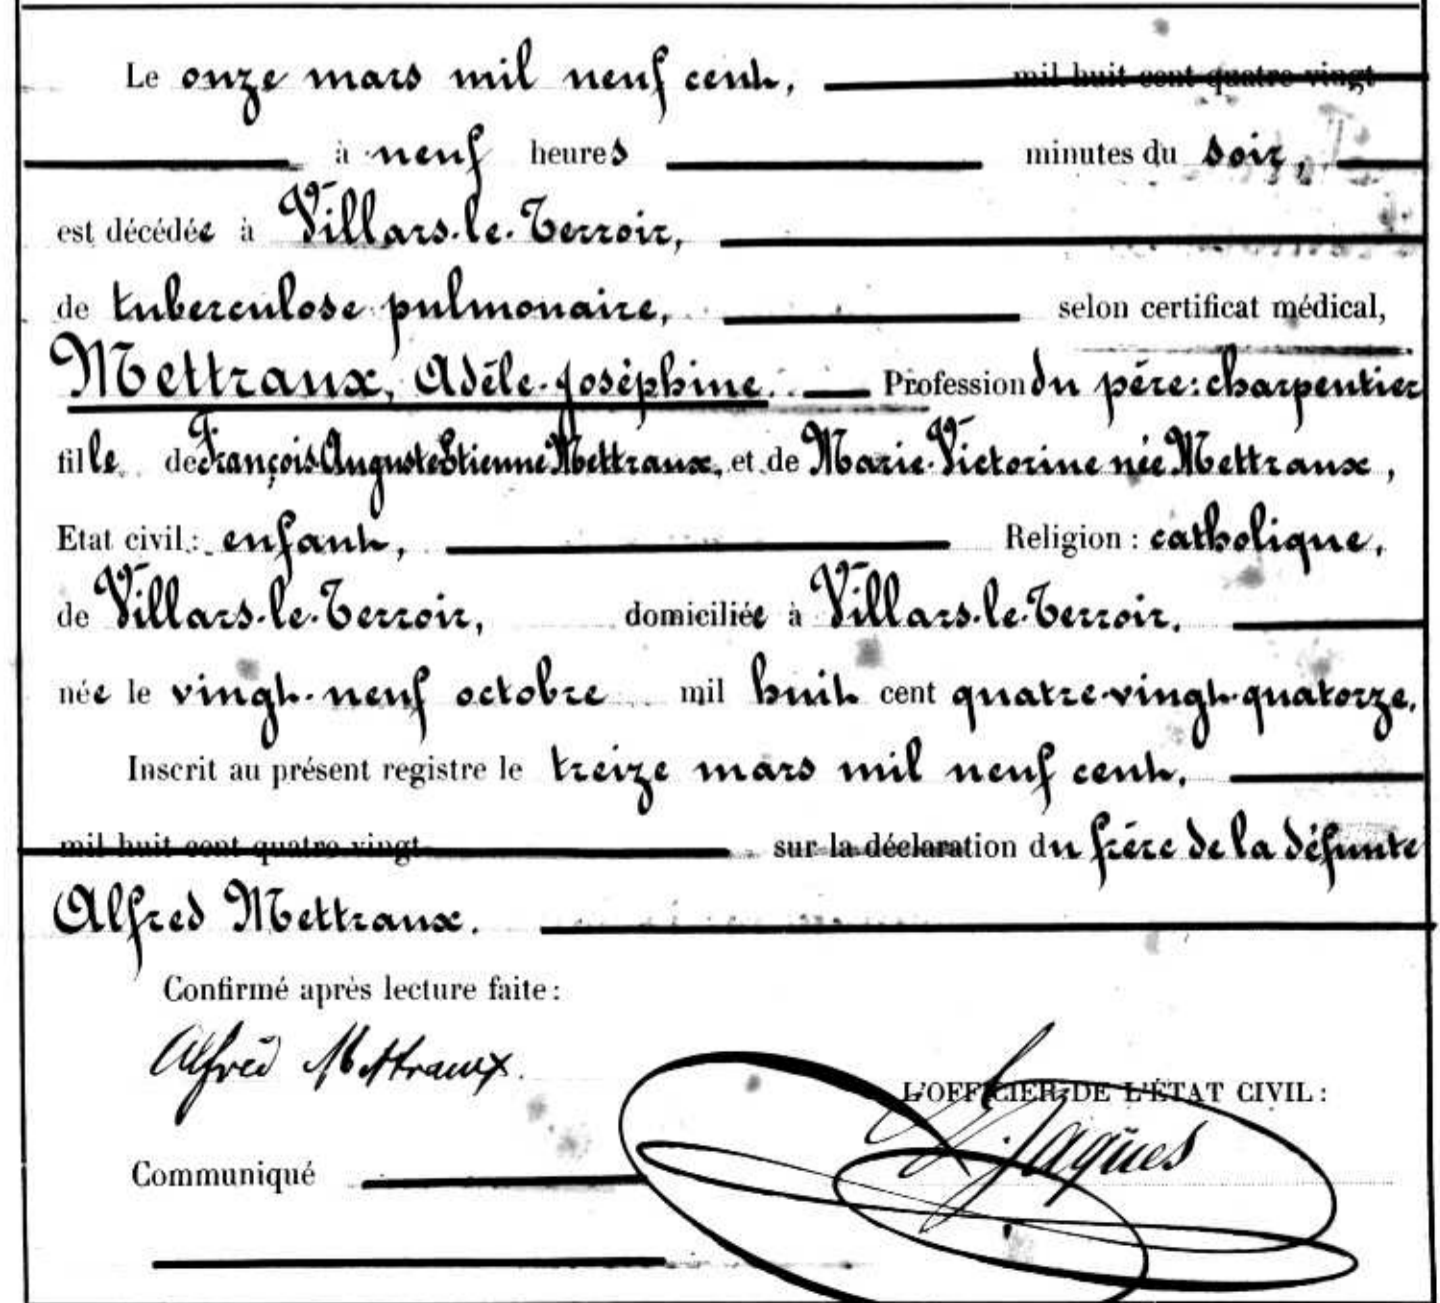 Le onze mars mil neuf cent, mil huit cent quatre vingt
à neuf heures minutes du soir,
est décédée à Villars-le-Terroir,
de tuberculose pulmonaire, selon certificat médical,
Mettraux, Adèle-Joséphine. Profession du père: charpentier
fille de François Auguste Etienne Mettraux, et de Marie-Victorine née Mettraux,
Etat civil: enfant, Religion: catholique,
de Villars-le-Terroir, domiciliée à Villars-le-Terroir,
née le vingt-neuf octobre mil huit cent quatre-vingt-quatorze.
Inscrit au présent registre le treize mars mil neuf cent,
mil huit cent quatre vingt sur la déclaration du frère de la défunte
Alfred Mettraux.
Confirmé après lecture faite:
Alfred Mettraux.
L'OFFICIER DE L'ÉTAT CIVIL:
Jaques
Communiqué